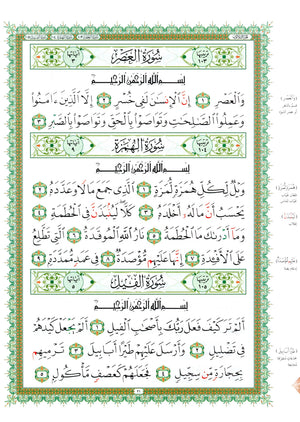 سُورَةُ العَصْرِ
بِسْمِ اللَّهِ الرَّحْمَٰنِ الرَّحِيمِ
وَالْعَصْرِ ١ إِنَّ الْإِنسَٰنَ لَفِي خُسْرٍ ٢ إِلَّا الَّذِينَ ءَامَنُوا
وَعَمِلُوا الصَّٰلِحَٰتِ وَتَوَاصَوْا بِالْحَقِّ وَتَوَاصَوْا بِالصَّبْرِ ٣
سُورَةُ الهُمَزَةِ
بِسْمِ اللَّهِ الرَّحْمَٰنِ الرَّحِيمِ
وَيْلٌ لِّكُلِّ هُمَزَةٍ لُّمَزَةٍ ١ الَّذِي جَمَعَ مَالًا وَعَدَّدَهُ ٢
يَحْسَبُ أَنَّ مَالَهُ أَخْلَدَهُ ٣ كَلَّا لَيُنبَذَنَّ فِي الْحُطَمَةِ ٤
وَمَا أَدْرَىٰكَ مَا الْحُطَمَةُ ٥ نَارُ اللَّهِ الْمُوقَدَةُ ٦ الَّتِي تَطَّلِعُ
عَلَى الْأَفْـِٔدَةِ ٧ إِنَّهَا عَلَيْهِم مُّؤْصَدَةٌ ٨ فِي عَمَدٍ مُّمَدَّدَةٍ ٩
سُورَةُ الفِيلِ
بِسْمِ اللَّهِ الرَّحْمَٰنِ الرَّحِيمِ
أَلَمْ تَرَ كَيْفَ فَعَلَ رَبُّكَ بِأَصْحَٰبِ الْفِيلِ ١ أَلَمْ يَجْعَلْ كَيْدَهُمْ
فِي تَضْلِيلٍ ٢ وَأَرْسَلَ عَلَيْهِمْ طَيْرًا أَبَابِيلَ ٣ تَرْمِيهِم
بِحِجَارَةٍ مِّن سِجِّيلٍ ٤ فَجَعَلَهُمْ كَعَصْفٍ مَّأْكُولٍ ٥